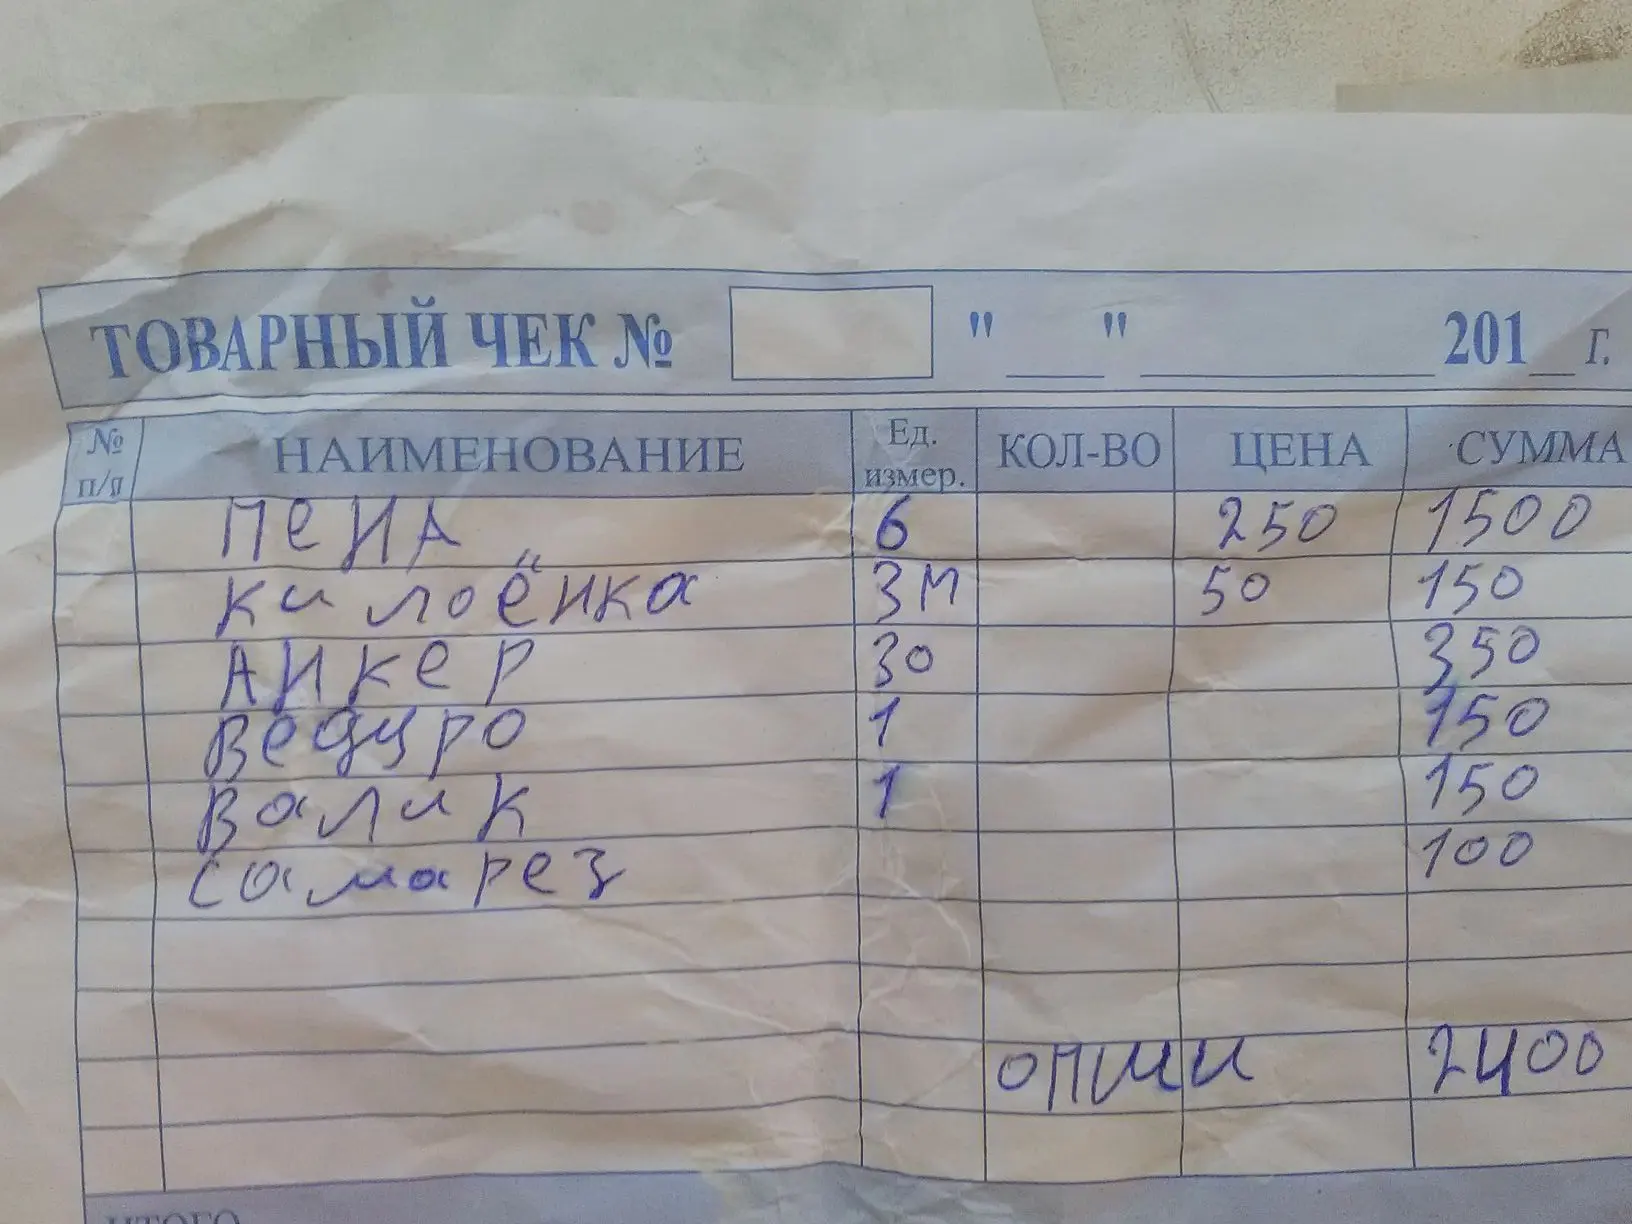 ТОВАРНЫЙ ЧЕК № " " 201 г.
№ п/п НАИМЕНОВАНИЕ Ед. измер. КОЛ-ВО ЦЕНА СУММА
ПеНА 6 250 1500
Килоёнка 3м 50 150
АНКеР 30 350
Ведуро 1 150
Валик 1 150
Саморез 100
2400
ИТОГО